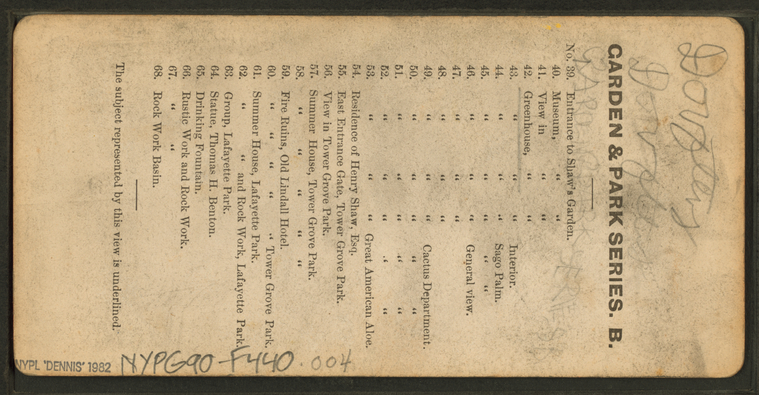 GARDEN & PARK SERIES. B.
No. 39. Entrance to Shaw's Garden.
40. Museum, " "
41. View in " "
42. Greenhouse, " "
43. " " " Interior.
44. " " " Sago Palm.
45. " " " " "
46. " " " General view.
47. " " "
48. " " "
49. " " " Cactus Department.
50. " " " " "
51. " " " " "
52. " " " " "
53. " " " Great American Aloe.
54. Residence of Henry Shaw, Esq.
55. East Entrance Gate, Tower Grove Park.
56. View in Tower Grove Park.
57. Summer House, Tower Grove Park.
58. " " " " "
59. Fire Ruins, Old Lindall Hotel.
60. " " " " " Tower Grove Park.
61. Summer House, Lafayette Park.
62. " " and Rock Work, Lafayette Park.
63. Group, Lafayette Park.
64. Statue, Thomas H. Benton.
65. Drinking Fountain.
66. Rustic Work and Rock Work.
67. " " "
68. Rock Work Basin.
The subject represented by this view is underlined.
NYPL "DENNIS" 1982
NYPG90-F440.004